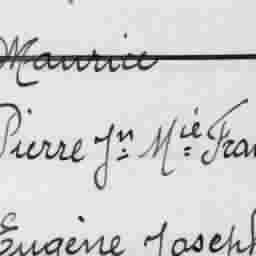 Maurice
Pierre Jn Mie Fran
Eugène Joseph